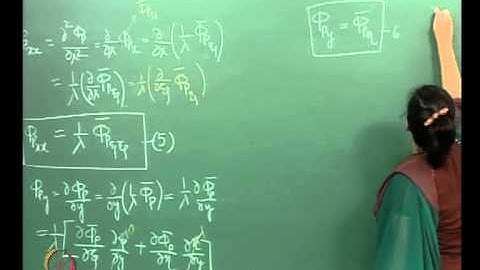 Φ_{P_{xx}} = ∂²Φ_P/∂x² = ∂/∂x Φ_{P_x} = ∂/∂x (1/λ Φ̄_{P_ξ})
= 1/λ (∂/∂x Φ̄_{P_ξ}) = 1/λ (∂/∂ξ Φ̄_{P_ξ})
Φ_{P_{xx}} = 1/λ Φ̄_{P_{ξξ}} —(5)
Φ_{P_y} = ∂Φ_P/∂y = ∂/∂y (1/λ Φ̄_P) = 1/λ ∂Φ̄_P/∂y
= 1/λ [∂Φ̄_P/∂ξ ∂ξ/∂y + ∂Φ̄_P/∂η ∂η/∂y]
Φ_{P_y} = Φ̄_{P_η} —6